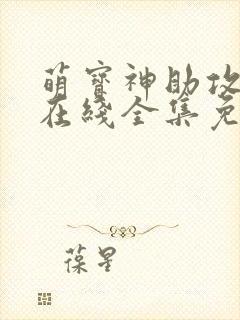 萌寳神助攻
在綫全集免
葆星